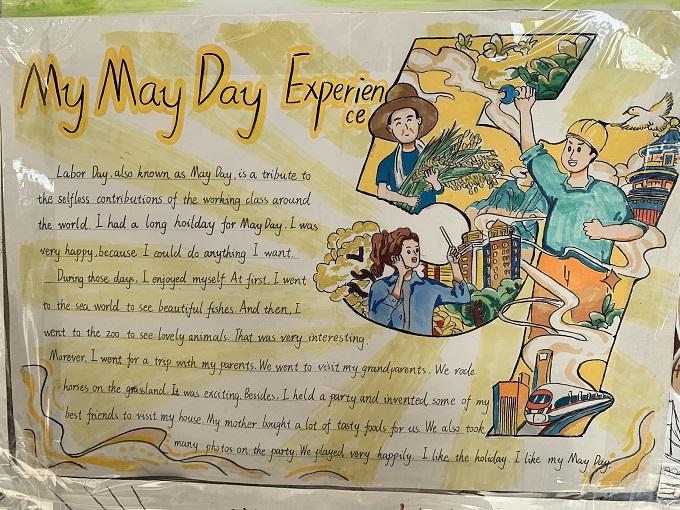 My May Day Experien
ce
Labor Day, also known as May Day, is a tribute to
the selfless contributions of the working class around
the world. I had a long hoilday for May Day. I was
very happy, because I could do anything I want.
During those days, I enjoyed myself. At first, I went
to the sea world to see beautiful fishes. And then, I
went to the zoo to see lovely animals. That was very interesting.
Morever, I went for a trip with my parents. We went to visit my grandparents. We rode
horses on the grassland. It was exciting. Besides, I held a party and invented some of my
best friends to visit my house. My mother bought a lot of tasty foods for us. We also took
many photos on the party. We played very happily. I like the holiday. I like my May Day.
51